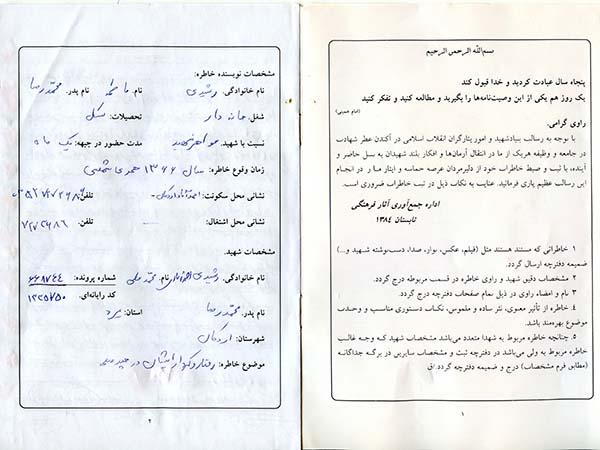 بسم‌الله الرحمن الرحیم
پنجاه سال عبادت کردید و خدا قبول کند
یک روز هم یکی از این وصیت‌نامه‌ها را بگیرید و مطالعه کنید و تفکر کنید
(امام خمینی)
راوی گرامی،
با توجه به رسالت بنیادشهید و امور ایثارگران انقلاب اسلامی در آکندن عطر شهادت
در جامعه و وظیفه هریک از ما در انتقال آرمان‌ها و افکار بلند شهیدان به نسل حاضر و
آینده، با ثبت و ضبط خاطرات خود از دلیرمردان عرصه حماسه و ایثار ما را در انجام
این رسالت عظیم یاری فرمائید. عنایت به نکات ذیل در ثبت خاطرات ضروری است.
اداره جمع‌آوری آثار فرهنگی
تابستان ۱۳۸۴
۱ خاطراتی که مستند هستند مثل (فیلم، عکس، نوار، صدا، دست‌نوشته شهید و...)
ضمیمه دفترچه ارسال گردد.
۲ مشخصات دقیق شهید و راوی خاطره در قسمت مربوطه درج گردد.
۳ نام و امضاء راوی در ذیل تمام صفحات دفترچه درج گردد.
۴ خاطره از تأثیر معنوی، نثر ساده و ملموس، نکات دستوری مناسب و وحدت
موضوع بهره‌مند باشد.
۵ چنانچه خاطره مربوط به شهدا متعدد می‌باشد مشخصات شهید که وجه غالب
خاطره مربوط به ولی می‌باشد در دفترچه ثبت و مشخصات سایرین در برگه جداگانه
(مطابق فرم مشخصات) درج و ضمیمه دفترچه گردد.
۱
مشخصات نویسنده خاطره:
نام خانوادگی: رشیدی نام: فاطمه نام پدر: محمدرضا
شغل: خانه دار تحصیلات:
نسبت با شهید: خواهر شهید مدت حضور در جبهه: یک ماه
زمان وقوع خاطره: سال ۱۳۶۶
نشانی محل سکونت: تلفن:
نشانی محل اشتغال: تلفن:
مشخصات شهید:
نام خانوادگی: رشیدی نام: محمد علی شماره پرونده:
کد رایانه‌ای:
نام پدر: محمدرضا استان: یزد
شهرستان: اردکان
موضوع خاطره: رفتار و کردار ایشان در
۲